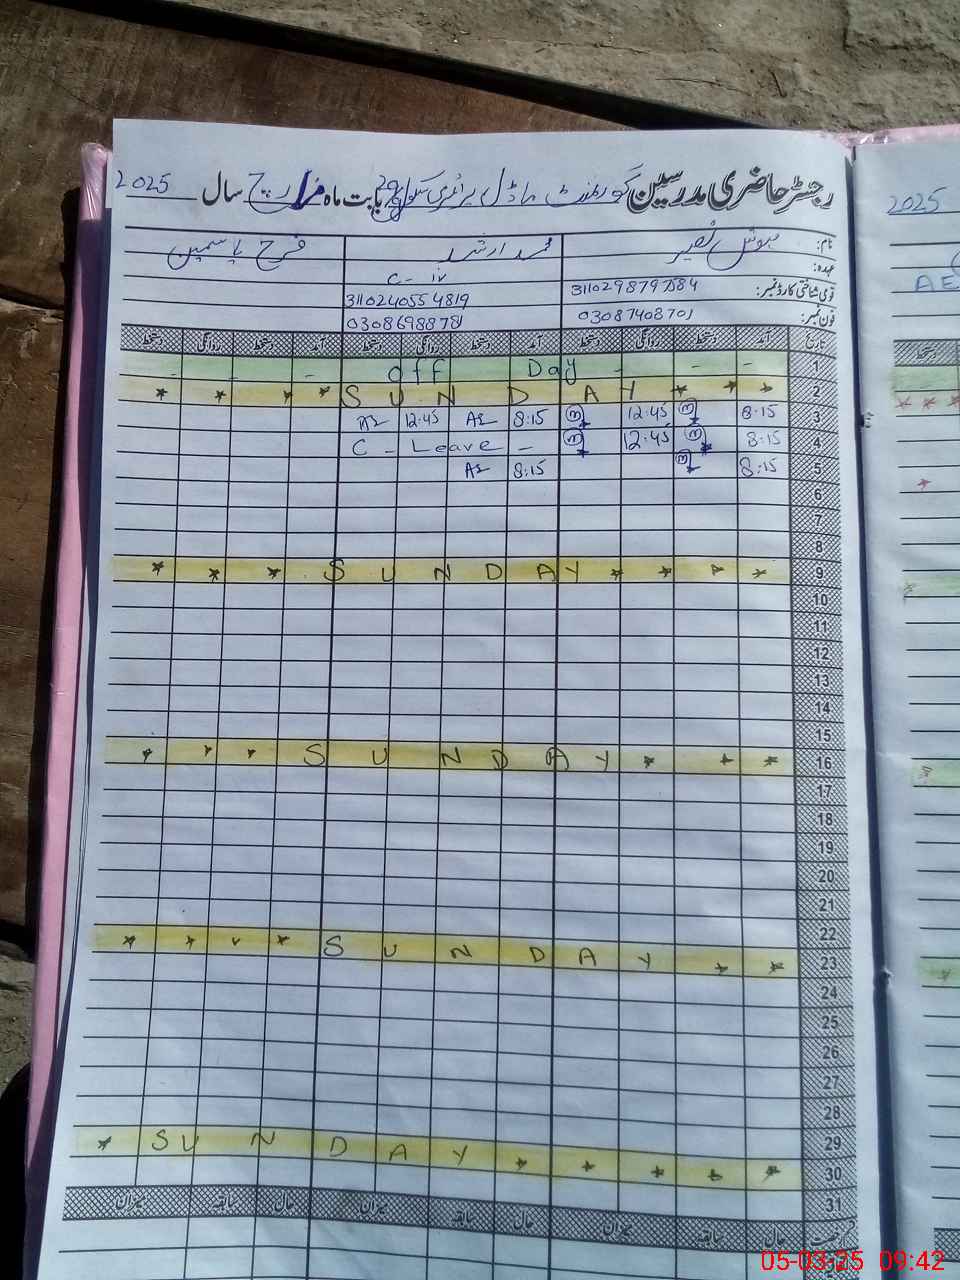 رجسٹر حاضری مدرسین گورنمنٹ ماڈل پرائمری سکول بابت ماہ مارچ سال 2025
نام: مہوش نصیر محمد ارشد فرح یاسمین
عہدہ: C-iv
قومی شناختی کارڈ نمبر: 3110240554819
فون نمبر: 03087408701 03086988781
تاریخ آمد دستخط روانگی دستخط آمد دستخط روانگی دستخط آمد دستخط روانگی دستخط
1 - - - off Day - - -
2 * * * * S U N D A Y * * *
3 8:15 12:45 8:15 AS 12:45 AS
4 8:15 12:45 C - Leave -
5 8:15 8:15 AS
6
7
8
9 * * * S U N D A Y * * * *
10
11
12
13
14
15
16 * * * S U N D A Y * * *
17
18
19
20
21
22
23 * * * * S U N D A Y * *
24
25
26
27
28
29
30 * S U N D A Y * * * * *
31
رخصت حال سابقہ میزان حال سابقہ میزان حال سابقہ میزان
2025
AE
دستخط
* * *
*
*
*
*
05-03-25 09:42